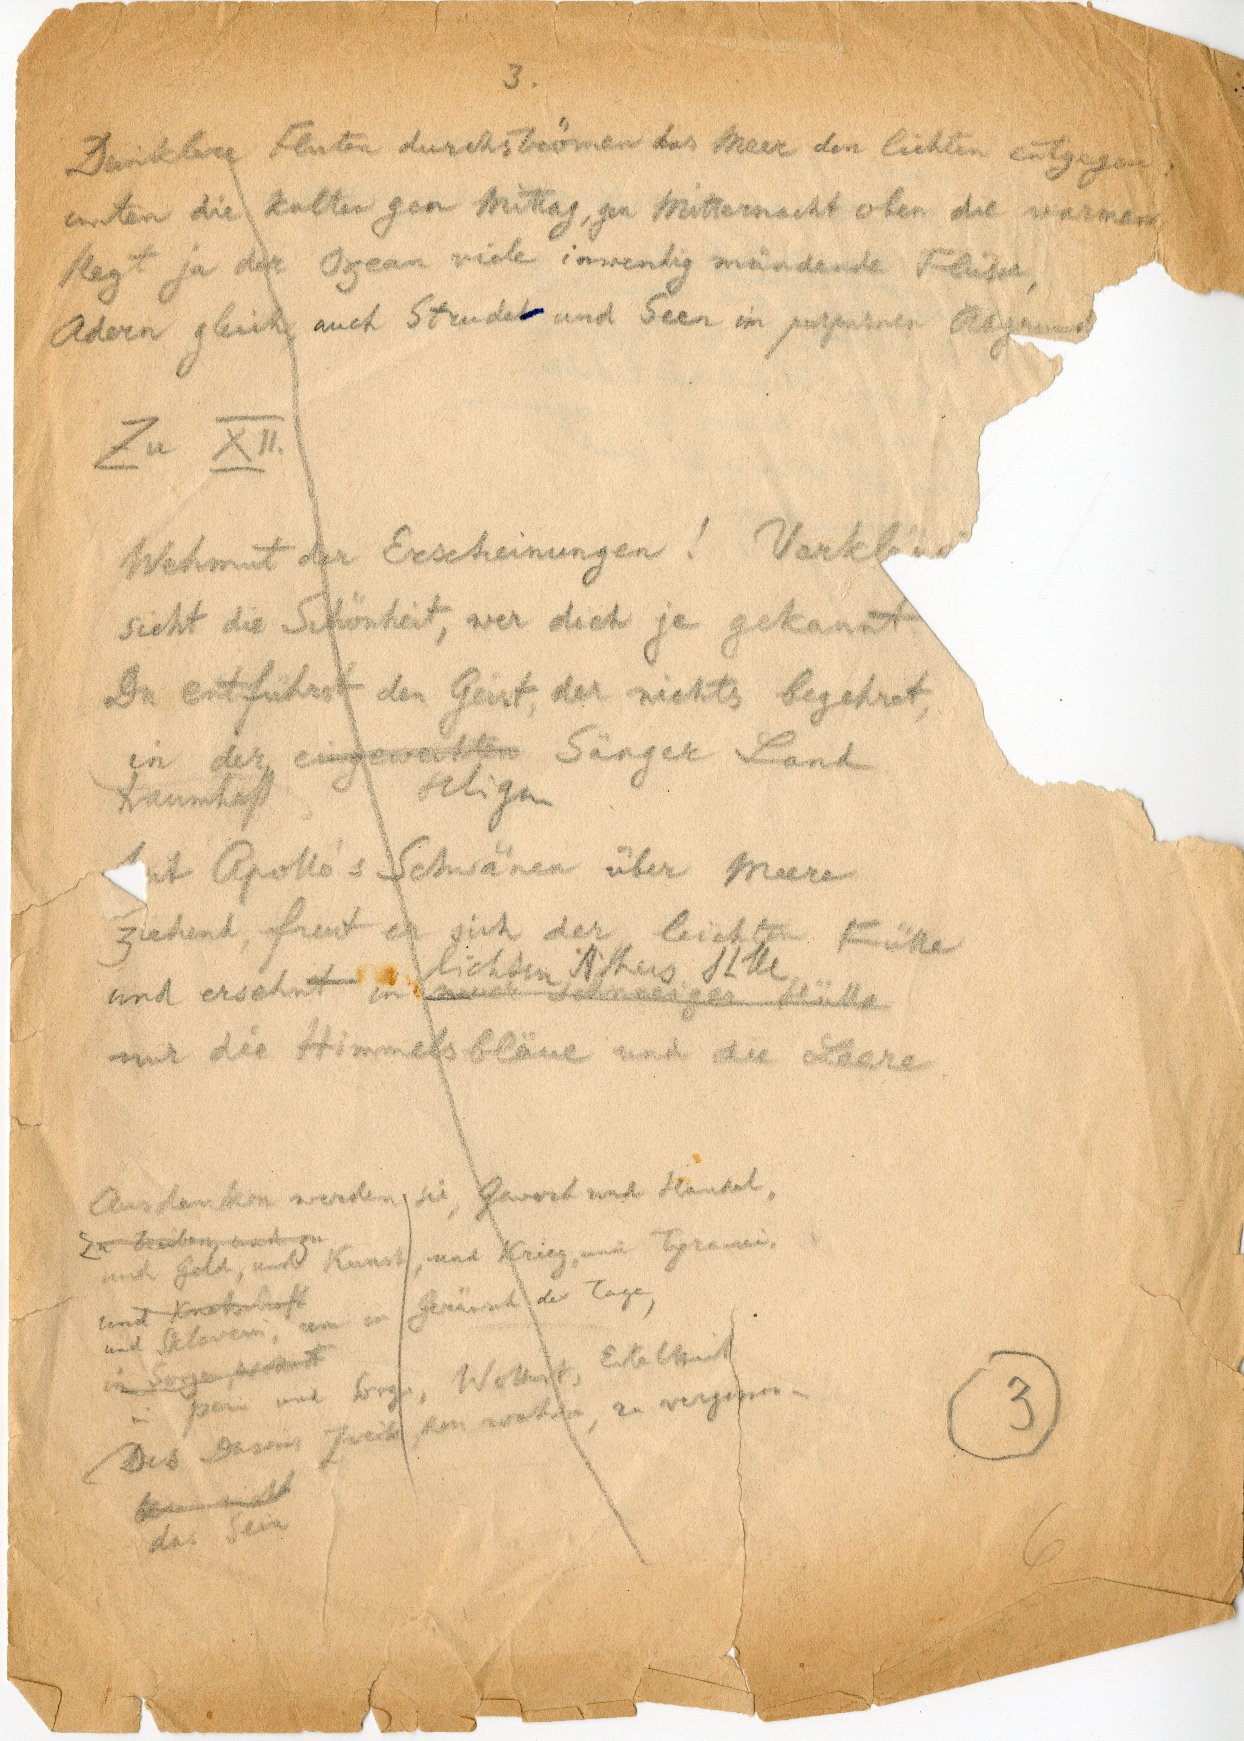 3.
Dunklere Fluten durchströmen das Meer den lichten entgegen,
unten die kalten gen Mittag, gen Mitternacht oben die warmen
Hegt ja der Ozean viele inwendig mündende Flüsse,
Adern gleich, auch Strudel und Seen im purpurnen
Zu XII.
Wehmut der Erscheinungen! Verklär
sieht die Schönheit, wer dich je gekannt
Du entführst den Geist, der nichts begehret,
in der eingeweihten Sänger Land
traumhaft seligen
Apollo's Schwänen über Meere
ziehend, freut er sich der leichten Fülle
lichten Äthers
und ersehnt in schneeiger Hülle
nur die Himmelsbläue und die Leere
Ausdenken werden sie, Gewerb und Handel,
und zu
und Geld, und Kunst, und Krieg, und Tyrannei,
und Knechtschaft
und Sklaverei, um im Geräusch der Tage,
in Sorge
in Pein und Sorge, Wollust, Eitelkeit
Des Daseins Zweck, den wahren, zu vergessen
das Sein
3
6